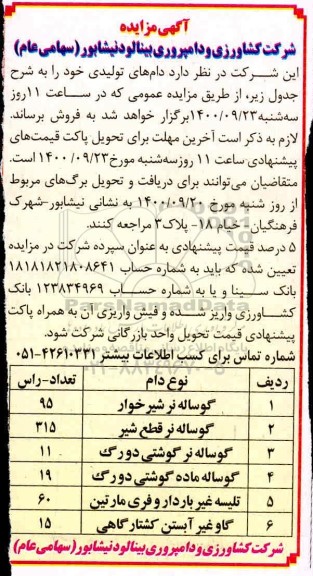 آگهی مزایده
شرکت کشاورزی و دامپروری بینالود نیشابور (سهامی عام)
این شرکت در نظر دارد دام‌های تولیدی خود را به شرح
جدول زیر، از طریق مزایده عمومی که در ساعت ۱۱ روز
سه‌شنبه ۱۴۰۰/۰۹/۲۳ برگزار خواهد شد به فروش برساند.
لازم به ذکر است آخرین مهلت برای تحویل پاکت قیمت‌های
پیشنهادی ساعت ۱۱ روز سه‌شنبه مورخ ۱۴۰۰/۰۹/۲۳ است.
متقاضیان می‌توانند برای دریافت و تحویل برگ‌های مربوط
از روز شنبه مورخ ۱۴۰۰/۰۹/۲۰ به نشانی نیشابور-شهرک
فرهنگیان - خیام ۱۸- پلاک ۳ مراجعه کنند.
۵ درصد قیمت پیشنهادی به عنوان سپرده شرکت در مزایده
تعیین شده که باید به شماره حساب ۱۸۱۸۱۸۲۱۸۰۸۶۴۱
بانک سینا و یا به شماره حساب ۱۲۳۸۳۴۹۶۹ بانک
کشاورزی واریز شده و فیش واریزی آن به همراه پاکت
پیشنهادی قیمت تحویل واحد بازرگانی شرکت شود.
شماره تماس برای کسب اطلاعات بیشتر ۴۲۶۱۰۳۳۱-۰۵۱
ردیف نوع دام تعداد-راس
۱ گوساله نر شیرخوار ۹۵
۲ گوساله نر قطع شیر ۳۱۵
۳ گوساله نر گوشتی دورگ ۱۱
۴ گوساله ماده گوشتی دورگ ۱۹
۵ تلیسه غیر باردار و فری مارتین ۶۰
۶ گاو غیر آبستن کشتارگاهی ۱۵
شرکت کشاورزی و دامپروری بینالود نیشابور (سهامی عام)
ParsNamadData
۰۲۱-۸۸۳۴۹۶۷۰-۵